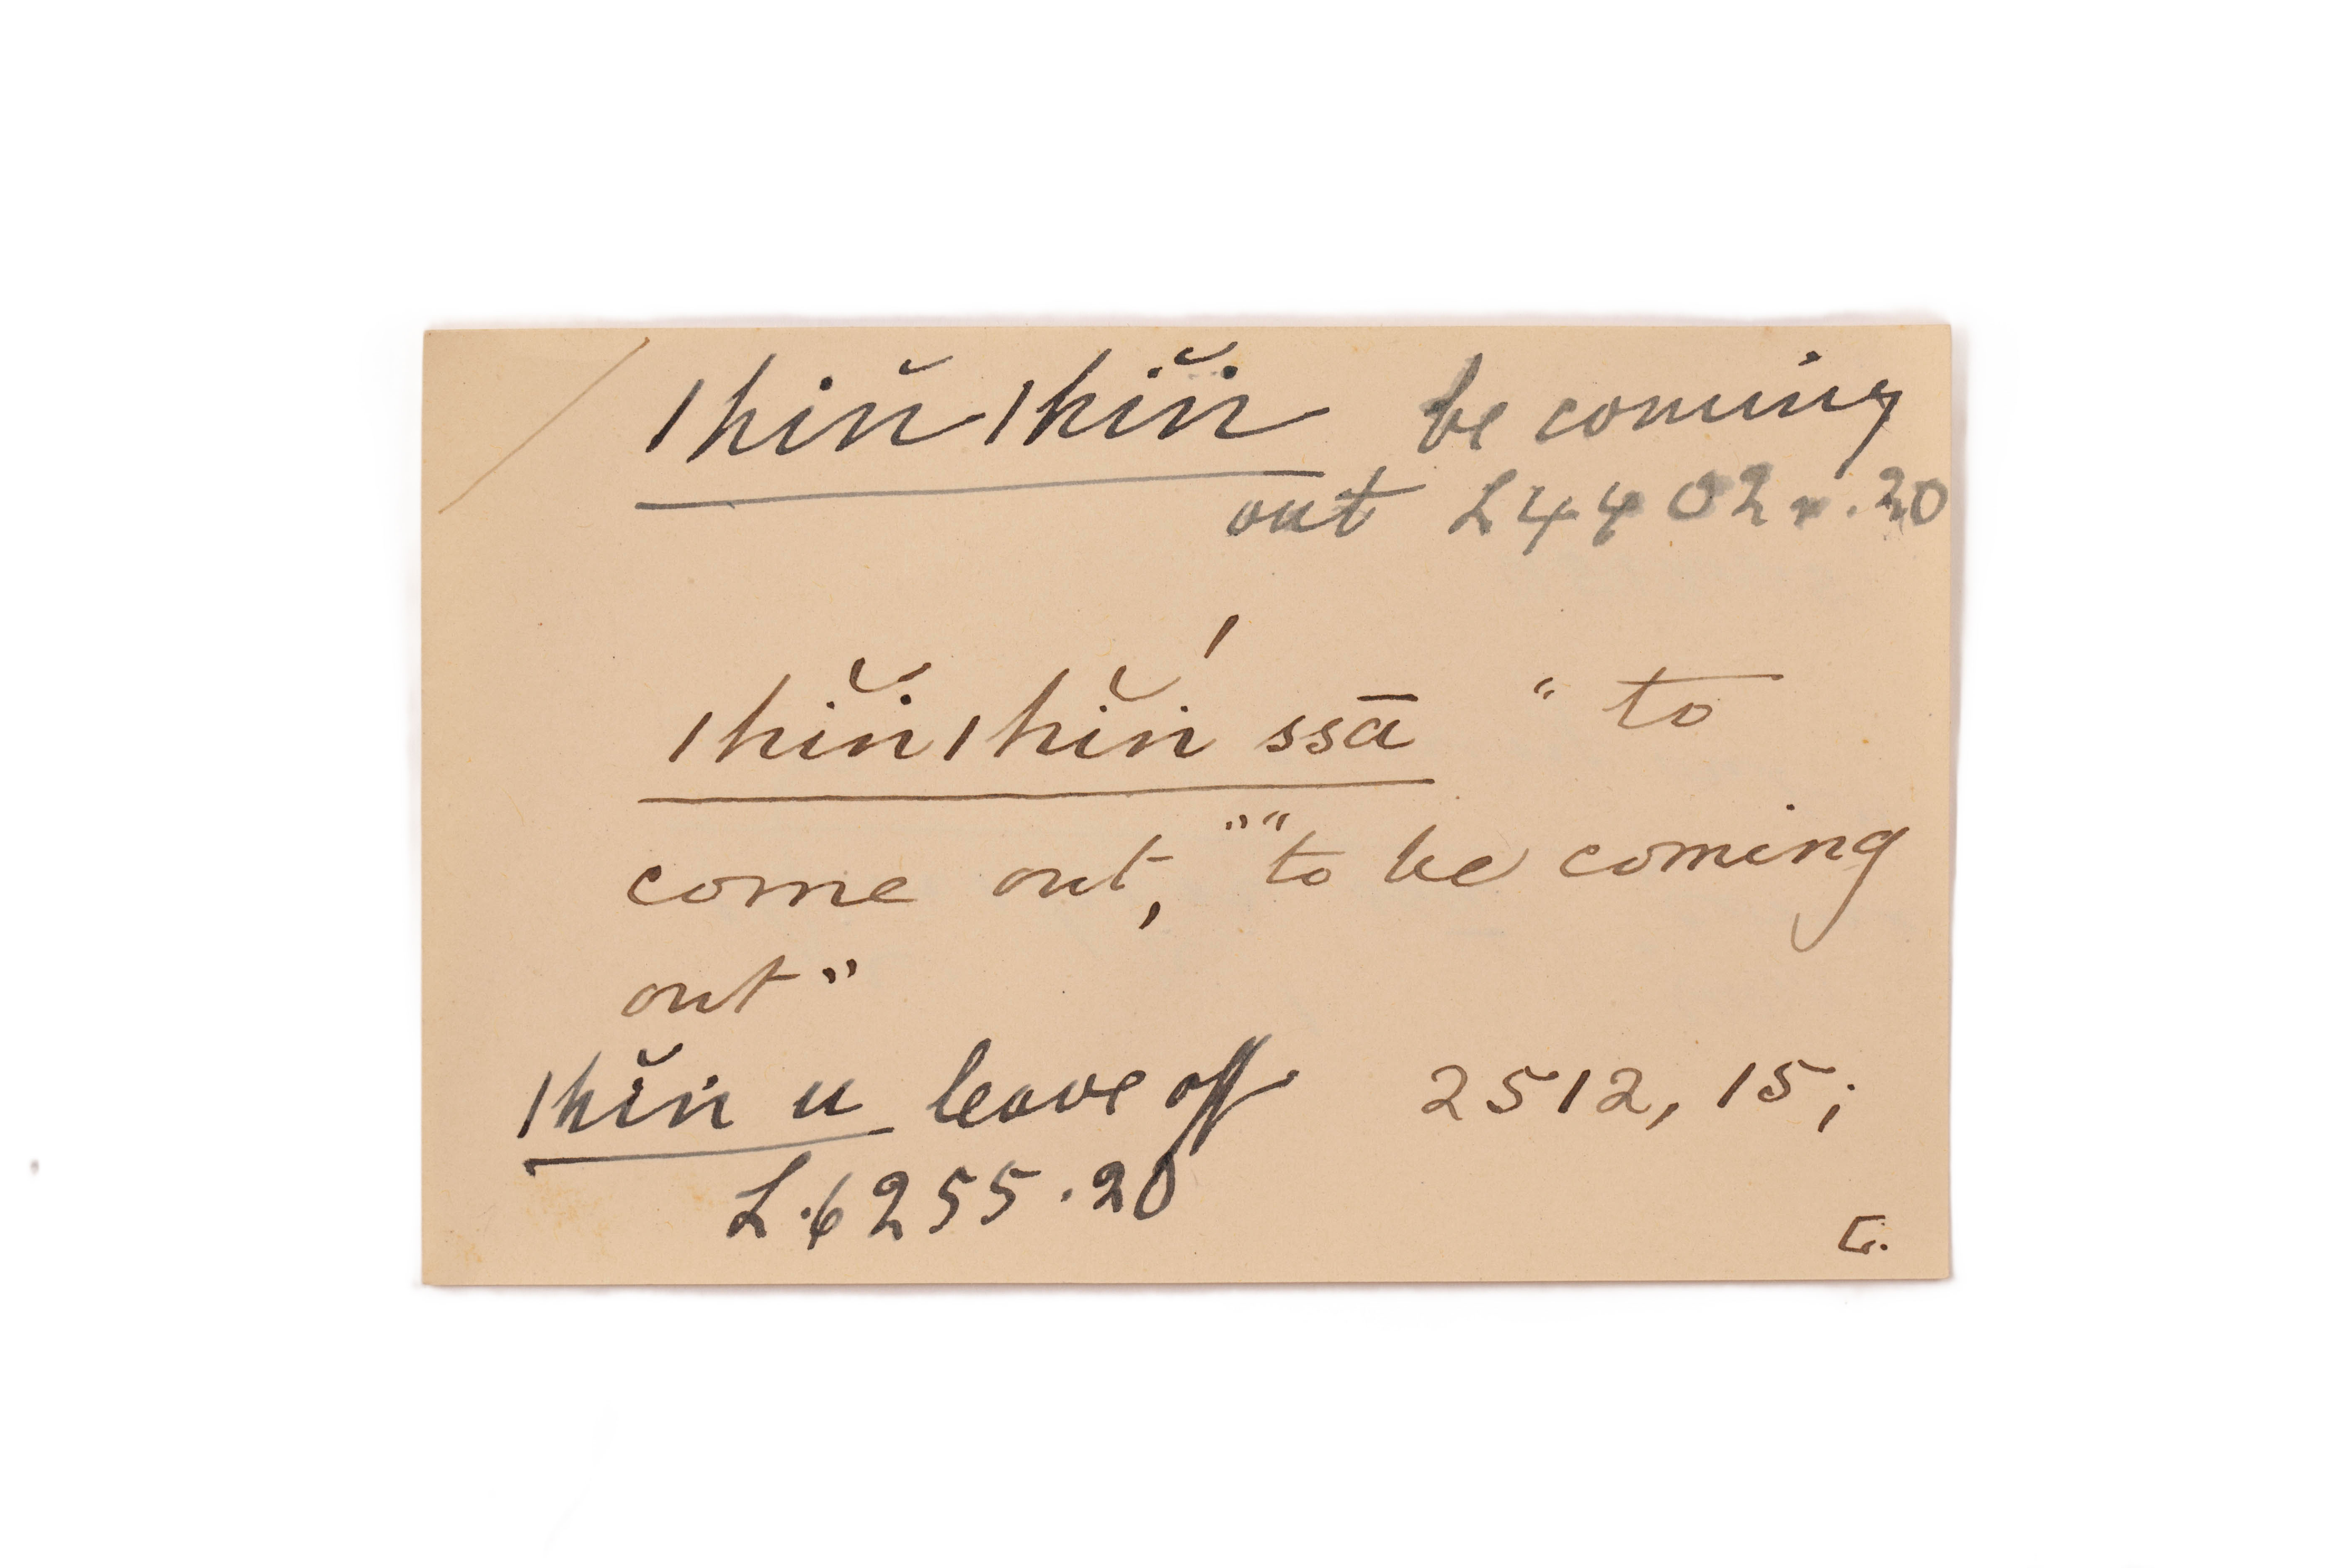 |hĭṅ|hĭṅ be coming
out L4402 .20
|hĭṅ|hĭṅ́ ssā " to
come out, " " to be coming
out "
|hĭṅ u leave off 2512, 15;
L.6255.20
G.